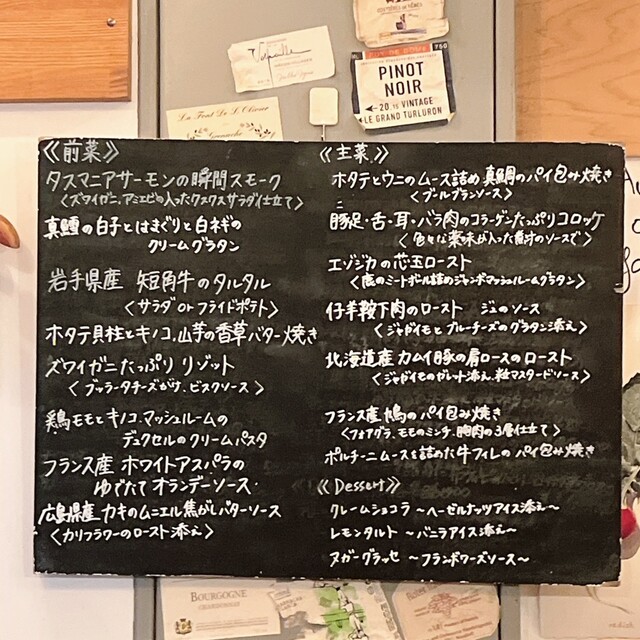 Volpaille
PINOT
NOIR
750
20.15 VINTAGE
LE GRAND TURLURON
La Font De L'Olivier
Grenache
《前菜》
タスマニアサーモンの瞬間スモーク
〈ズワイガニ、アミエビの入ったクスクスサラダ仕立て〉
真鱈の白子とはまぐりと白ネギの
クリームグラタン
岩手県産 短角牛のタルタル
〈サラダ or フライドポテト〉
ホタテ貝柱とキノコ、山芋の香草バター焼き
ズワイガニたっぷり リゾット
〈ブッラータチーズがけ、ビスクソース〉
鶏モモとキノコ、マッシュルームの
デュクセルのクリームパスタ
フランス産 ホワイトアスパラの
ゆでたて オランデーソース
広島県産 カキのムニエル焦がしバターソース
〈カリフラワーのロースト添え〉
《主菜》
ホタテとウニのムース詰め 真鯛のパイ包み焼き
〈ブールブランソース〉
豚足・舌・耳・バラ肉のコラーゲンたっぷりコロッケ
〈色々な薬味が入った煮汁のソースで〉
エゾジカの芯玉ロースト
〈鹿のミートボール詰めジャンボマッシュルームグラタン〉
仔羊鞍下肉のロースト ジュのソース
〈ジャガイモとブルーチーズのグラタン添え〉
北海道産 カムイ豚の肩ロースのロースト
〈ジャガイモのガレット添え、粒マスタードソース〉
フランス産 鳩のパイ包み焼き
〈フォアグラ、モモのミンチ、胸肉の3層仕立て〉
ポルチーニムースを詰めた牛フィレのパイ包み焼き
《Dessert》
クレームショコラ ～ヘーゼルナッツアイス添え～
レモンタルト ～バニラアイス添え～
ヌガーグラッセ ～フランボワーズソース～
BOURGOGNE
CHARDONNAY